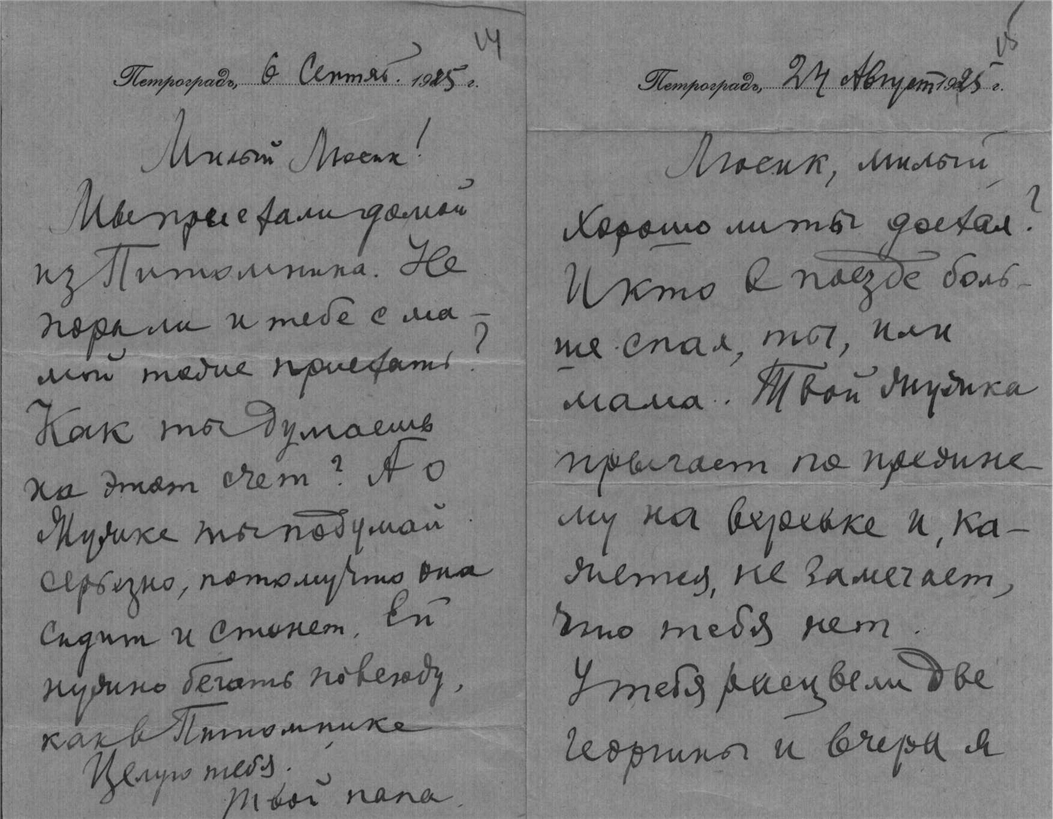 14
Петроградъ, 6 Сентяб. 1925 г.
Милый Люсик!
Мы приехали домой
из Питомника. Не
пора ли и тебе с ма-
мой тоже приехать?
Как ты думаешь
на этот счет? А о
Жучке ты подумай
серьезно, потому что она
сидит и стонет. Ей
нужно бегать повсюду,
как в Питомнике
Целую тебя.
Твой папа.
15
Петроградъ, 24 Август 1925 г.
Люсик, милый,
хорошо ли ты доехал?
И кто в поезде боль-
ше спал, ты, или
мама.. Твой Жучка
прыгает по прежне-
му на веревке и, ка-
жется, не замечает,
что тебя нет.
У тебя расцвели две
георгины и вчера я